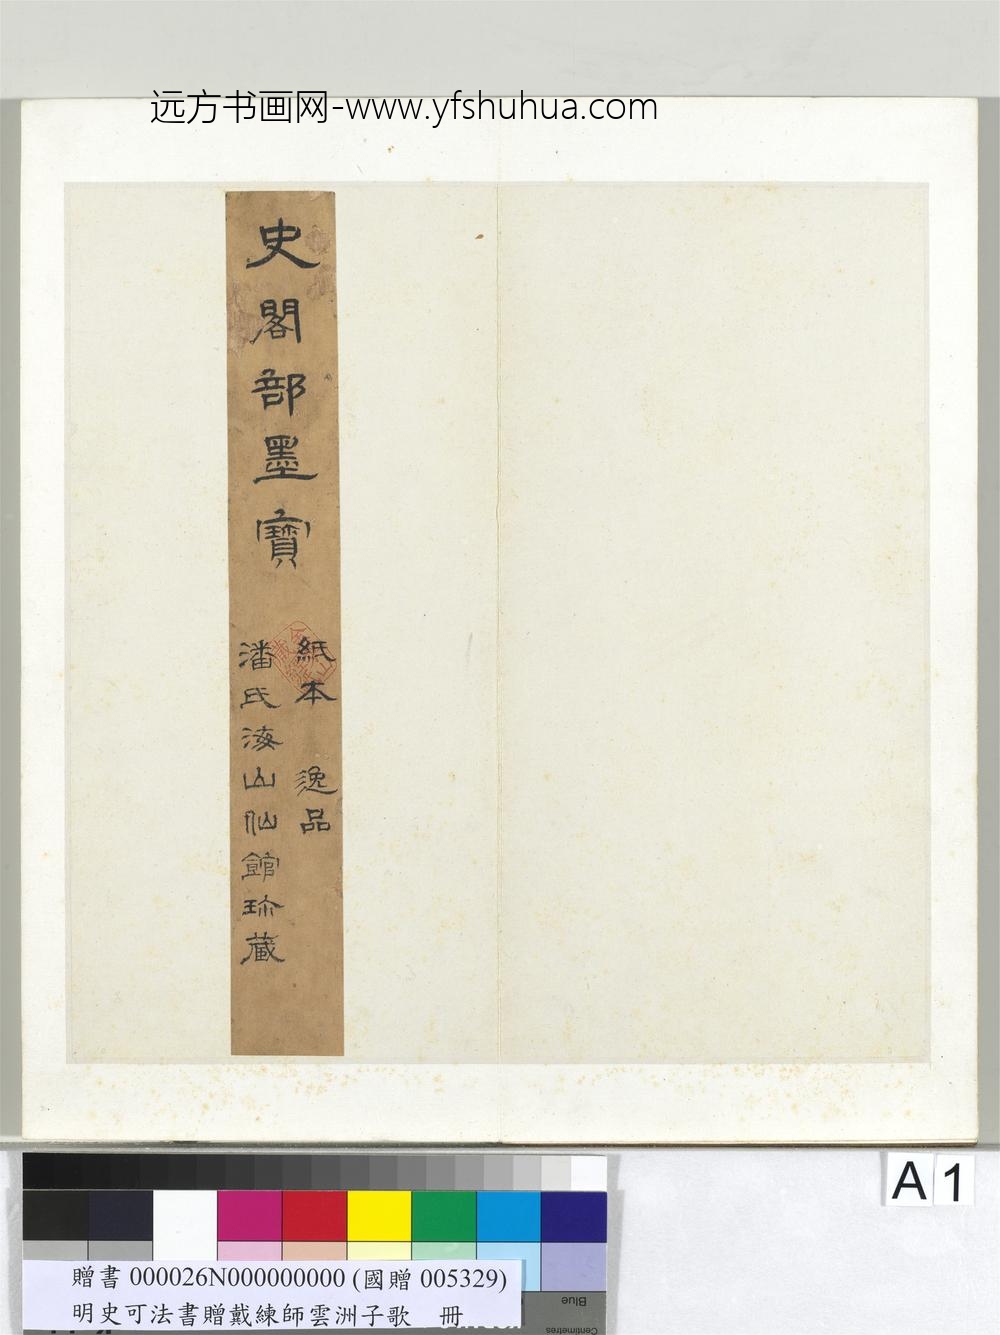 远方书画网-www.yfshuhua.com
史閣部墨寶
紙本 逸品
潘氏海山仙館珎藏
A 1
贈書 000026N000000000 (國贈 005329)
明史可法書贈戴練師雲洲子歌 冊
Blue
Centimetres